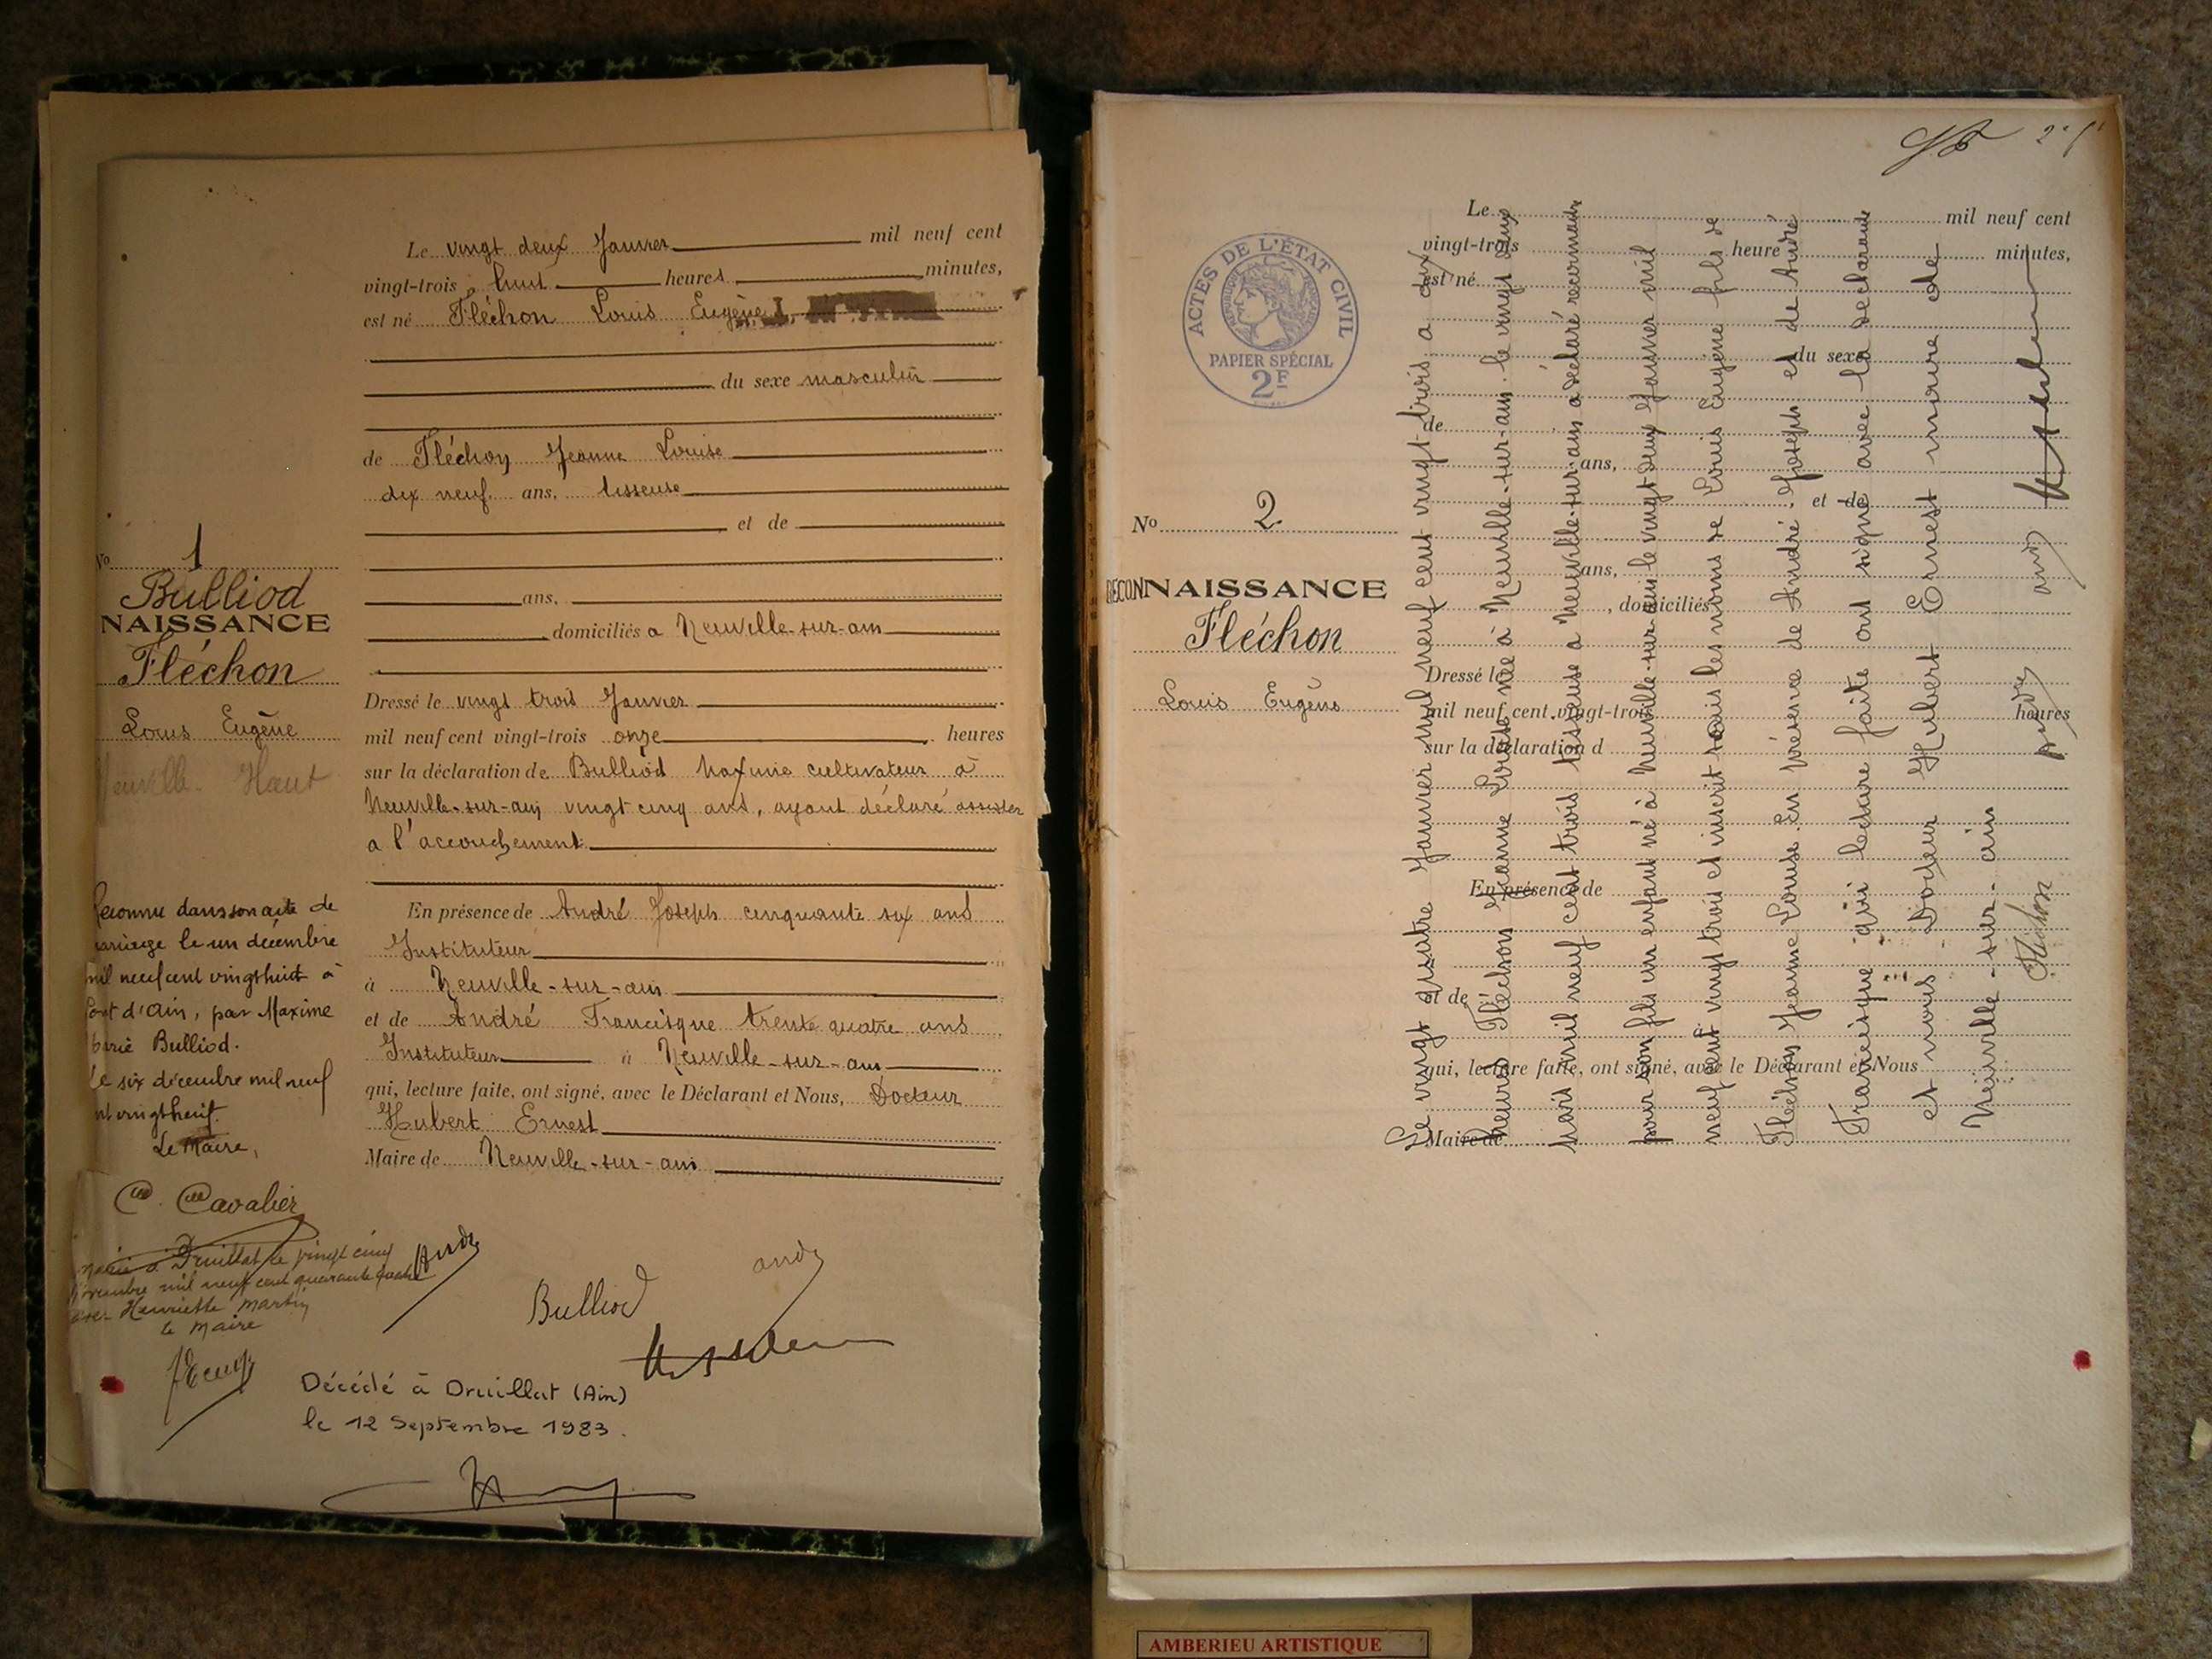 Le vingt deux Janvier mil neuf cent
vingt-trois, huit heures minutes,
est né Fléchon Louis Eugène
du sexe masculin
de Fléchon Jeanne Louise
dix neuf ans, tisseuse
et de
ans,
domiciliés a Neuville-sur-ain
Dressé le vingt trois Janvier
mil neuf cent vingt-trois onze heures
sur la déclaration de Bulliod Maxime cultivateur à
Neuville-sur-ain vingt cinq ans, ayant déclaré assister
a l'accouchement
En présence de André Joseph cinquante six ans
Instituteur
à Neuville-sur-ain
et de André Francisque trente quatre ans
Instituteur à Neuville-sur-ain
qui, lecture faite, ont signé, avec le Déclarant et Nous, Docteur
Hubert Ernest
Maire de Neuville-sur-ain
No 1
Bulliod
NAISSANCE
Fléchon
Louis Eugène
Neuville - Haut
Reconnu dans son acte de
mariage le un décembre
mil neuf cent vingt huit à
Pont d'Ain, par Maxime
Marie Bulliod.
Le six décembre mil neuf
cent vingt huit.
Le Maire,
Cavalier
Marié à Druillat le vingt cinq
novembre mil neuf cent quarante quatre
avec Henriette Martin
le Maire
André
Bulliod
andré
Décédé à Druillat (Ain)
le 12 Septembre 1983.
ACTES DE L'ÉTAT CIVIL
PAPIER SPÉCIAL
2F
No 2
RECONNAISSANCE
Fléchon
Louis Eugène
Le mil neuf cent
vingt-trois heure minutes,
est né
du sexe
de
ans,
et de
ans,
, domiciliés
Dressé le
mil neuf cent vingt-trois heures
sur la déclaration d
En présence de
et de
qui, lecture faite, ont signé, avec le Déclarant et Nous
Maire de
Le vingt quatre Janvier mil neuf cent vingt trois a dix
heures Fléchon Jeanne Louise née à Neuville-sur-ain le vingt deux
Mars mil neuf cent trois tisseuse a Neuville-sur-ain a déclaré reconnaitre
pour son fils un enfant né à Neuville-sur-ain le vingt deux Janvier mil
neuf cent vingt trois et inscrit sous les noms de Louis Eugène fils de
Fléchon Jeanne Louise. En présence de André Joseph et de André
Francisque qui lecture faite ont signé avec la déclarante
et nous Docteur Hubert Ernest maire de
Neuville-sur-ain
Fléchon
andré
AMBERIEU ARTISTIQUE